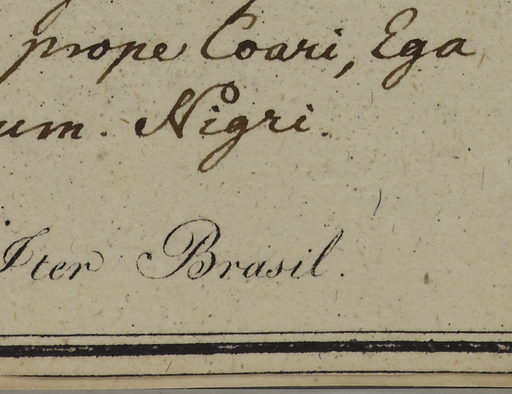 prope Coari, Ega
um. Nigri.
Iter Brasil.